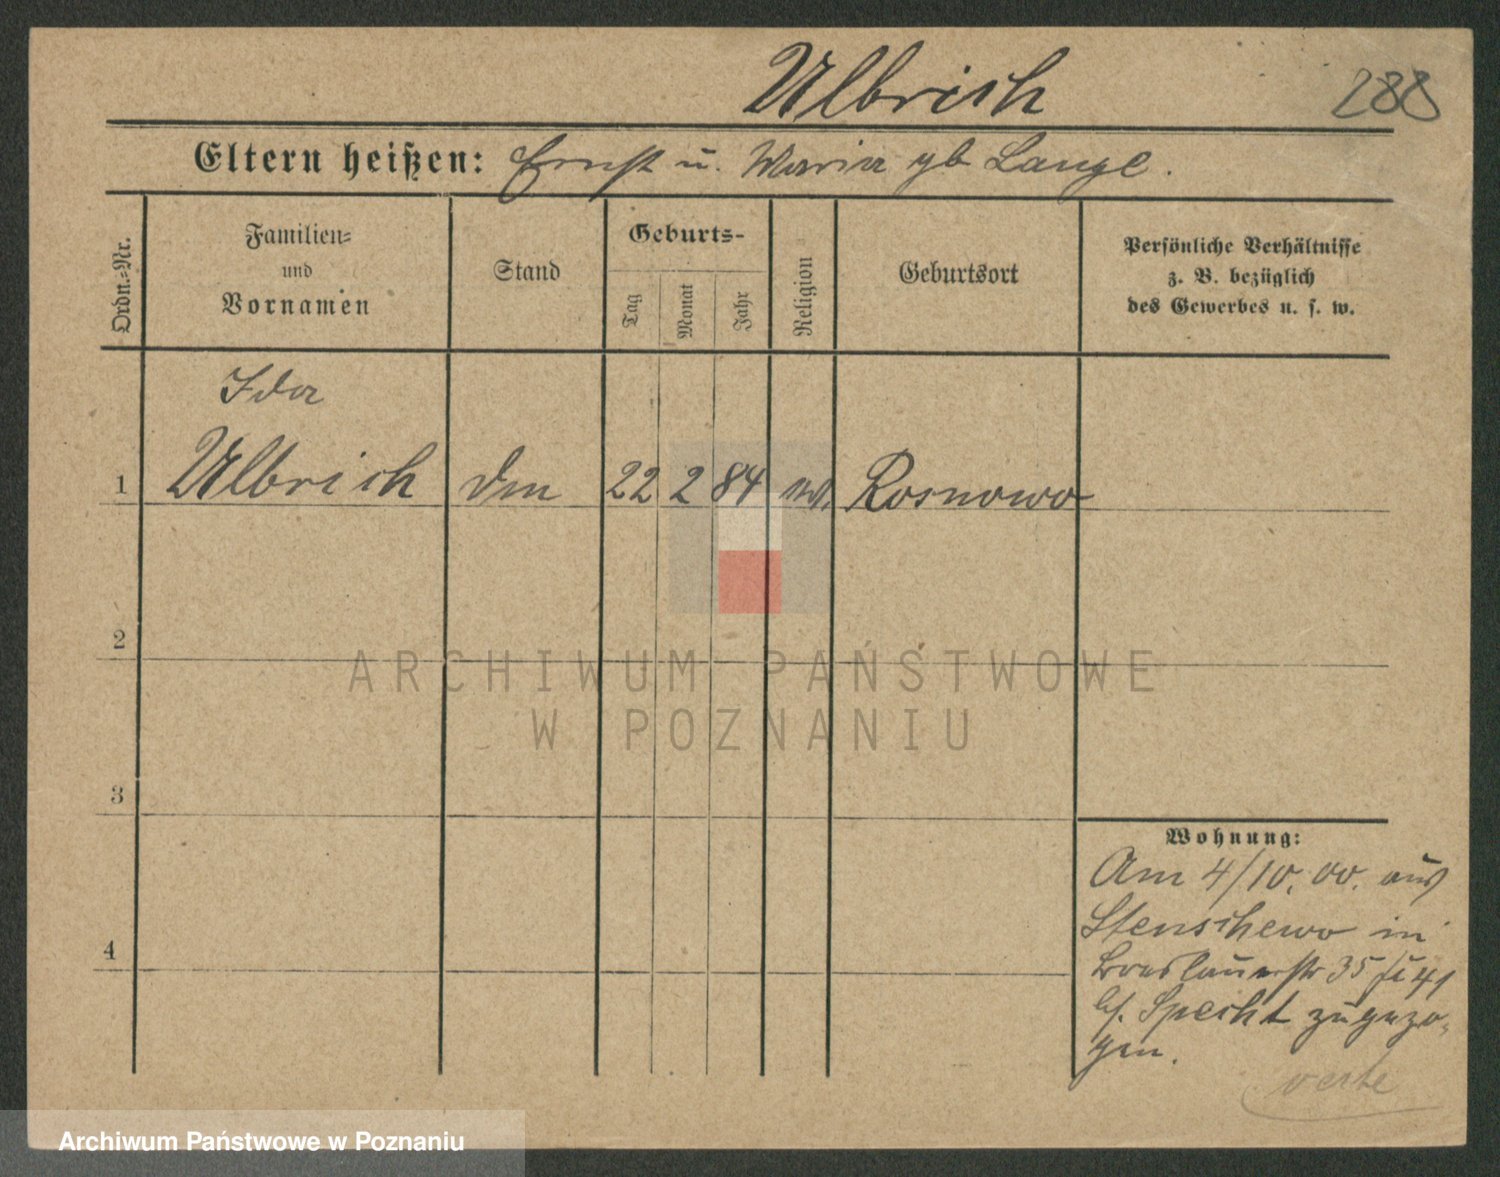 Ulbrich
288
Eltern heißen: Ernst u. Maria gb Lange.
Ordn.-Nr.
Familien-
und
Vornamen
Stand
Geburts-
Tag
Monat
Jahr
Religion
Geburtsort
Persönliche Verhältnisse
z. B. bezüglich
des Gewerbes u. s. w.
Ida
1 Ulbrich 22 2 84 Rosnowo
2
ARCHIWUM PAŃSTWOWE
W POZNANIU
3
Wohnung:
Am 4/10.00. aus
Stenschewo in
4
Breslauerstr 35 41
Specht zugezo-
gen.
verte
Archiwum Państwowe w Poznaniu